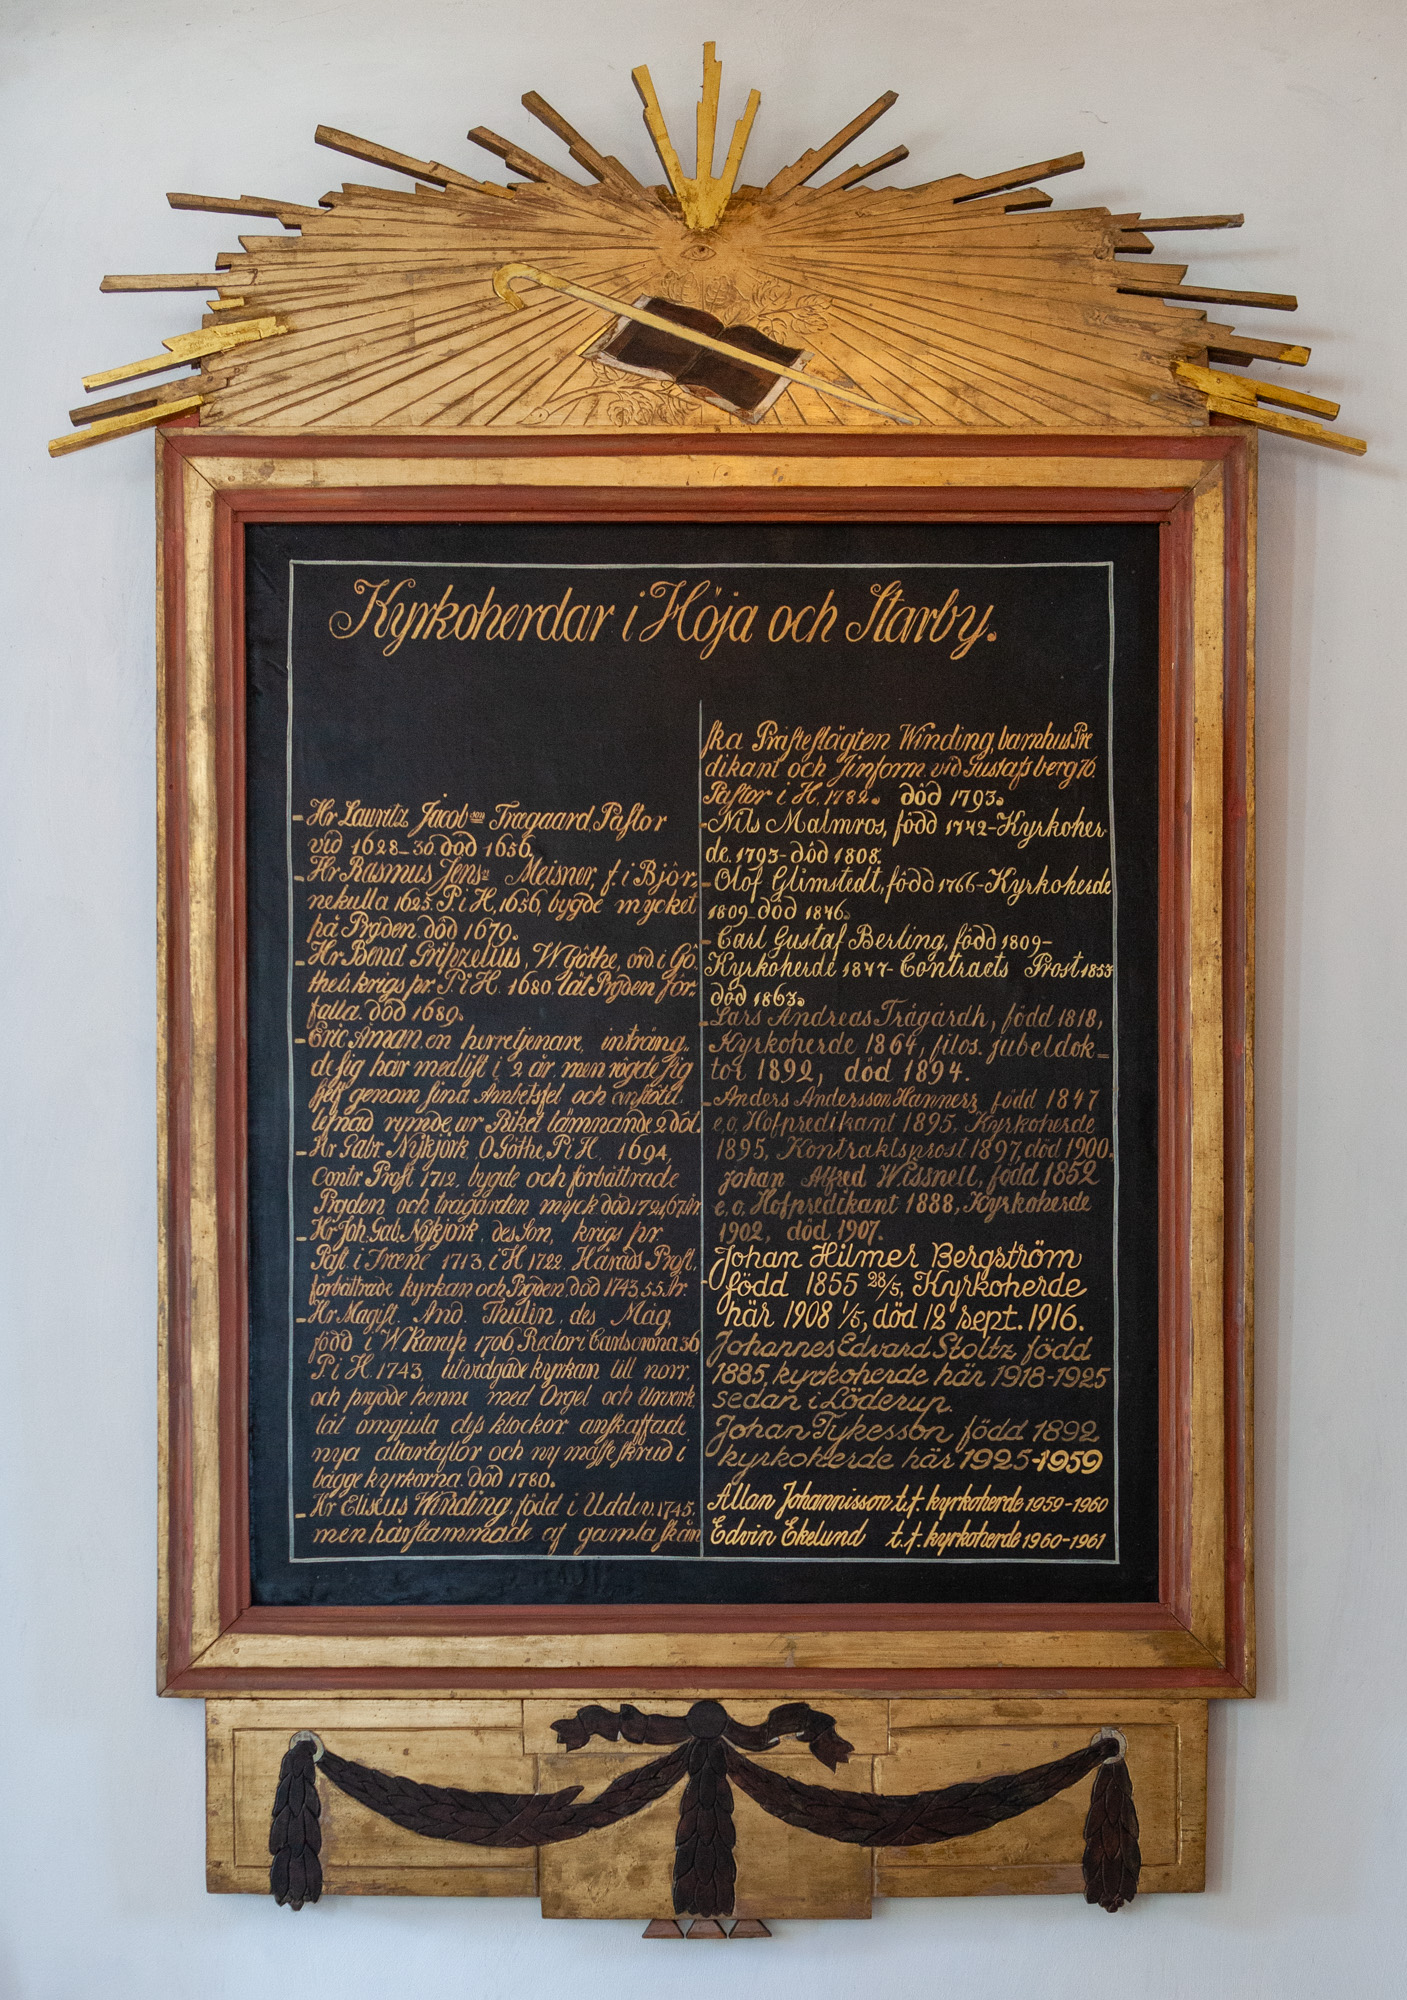 Kyrkoherdar i Höja och Starby.
- Hr Lauritz Jacobson Trægaard, Pastor
vid 1628-30 död 1656.
- Hr Rasmus Jens: Meisner, f. i Björ-
nekulla 1625. P i H, 1656, bygde mycket
på Pgden. död 1679.
- Hr Bend Gripzelius, W Göthe, ord i Gö-
theb. krigs pr. P i H. 1680. lät Pgden för-
falla. död 1689.
- Eric Aman en herretjenare, inträng-
de sig här medlist i 2 år. men rögde sig
sielf genom sina Ambetsfel och
lefnad rymde ur Riket lämnande 2 död.
- Hr Gabr. Nykjörk O Göthe, P i H. 1694,
contr Prost 1712. bygde och förbättrade
Pgden och trägården myck död 1721, 67 år.
- Hr Joh. Gab. Nykjörk, des son, krigs pr
Past. i Træne 1713. i H 1722. Härads Prost,
förbättrade kyrkan och Pgden. död 1743. 55 år.
- Hr Magist. And. Thulin, des Måg,
född i W Karup 1706, Rector i Carlscrona 36,
P i H. 1743, utvidgade kyrkan till norr.
och prydde henne med Orgel och Urverk.
lät omgiuta dess klockor. anskaffade
nya altartaflor och ny messe skrud i
bägge kyrkorna. död 1780.
- Hr Eliseus Winding, född i Uddev. 1745.
men härstammade af gamla skån
ska Prästeslägten Winding, barnhus Pre
dikant och Jinform. vid Gustafsberg 76.
Pastor i H. 1782. död 1793.
- Nils Malmros, född 1742-Kyrkoher-
de. 1793-död 1808.
- Olof Glimstedt, född 1766-Kyrkoherde
1809-död 1846.
- Carl Gustaf Berling, född 1809-
Kyrkoherde 1847-Contracts Prost 1853
död 1863.
- Lars Andreas Trägårdh, född 1818,
Kyrkoherde 1864, filos. jubeldok-
tor 1892, död 1894.
- Anders Andersson Hannerz, född 1847
e.o. Hofpredikant 1895, Kyrkoherde
1895, Kontraktsprost 1897, död 1900.
Johan Alfred Wissnell, född 1852
e.o. Hofpredikant 1888, Kyrkoherde
1902, död 1907.
- Johan Hilmer Bergström
född 1855 28/5, Kyrkoherde
här 1908 1/5, död 12 sept. 1916.
Johannes Edvard Stoltz född
1885, kyrkoherde här 1918-1925
sedan i Löderup.
Johan Tykesson född 1892
kyrkoherde här 1925-1959
Allan Johannisson t.f. kyrkoherde 1959-1960
Edvin Ekelund t.f. kyrkoherde 1960-1961